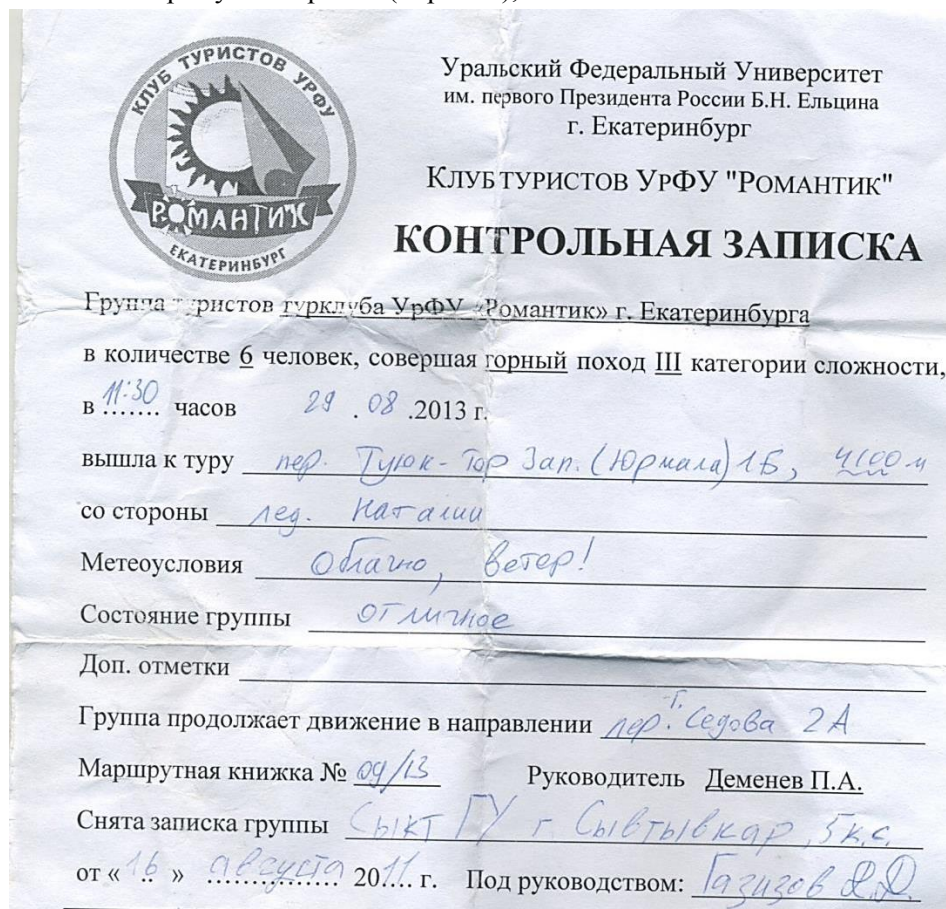 КЛУБ ТУРИСТОВ УРФУ
РОМАНТИК
ЕКАТЕРИНБУРГ
Уральский Федеральный Университет
им. первого Президента России Б.Н. Ельцина
г. Екатеринбург
КЛУБ ТУРИСТОВ УРФУ "РОМАНТИК"
КОНТРОЛЬНАЯ ЗАПИСКА
Группа туристов турклуба УрФУ «Романтик» г. Екатеринбурга
в количестве 6 человек, совершая горный поход III категории сложности,
в 11:30 часов 29 . 08 .2013 г.
вышла к туру пер. Туюк-Тор Зап. (Юрмала) 1Б, 4100 м
со стороны лед. Наталии
Метеоусловия Облачно, ветер!
Состояние группы отличное
Доп. отметки
Группа продолжает движение в направлении пер. Г. Седова 2А
Маршрутная книжка № 09/13 Руководитель Деменев П.А.
Снята записка группы СыктГУ г. Сывтывкар, 5 к.с.
от « 16 » августа 2011 г. Под руководством: Газизов Д.Д.